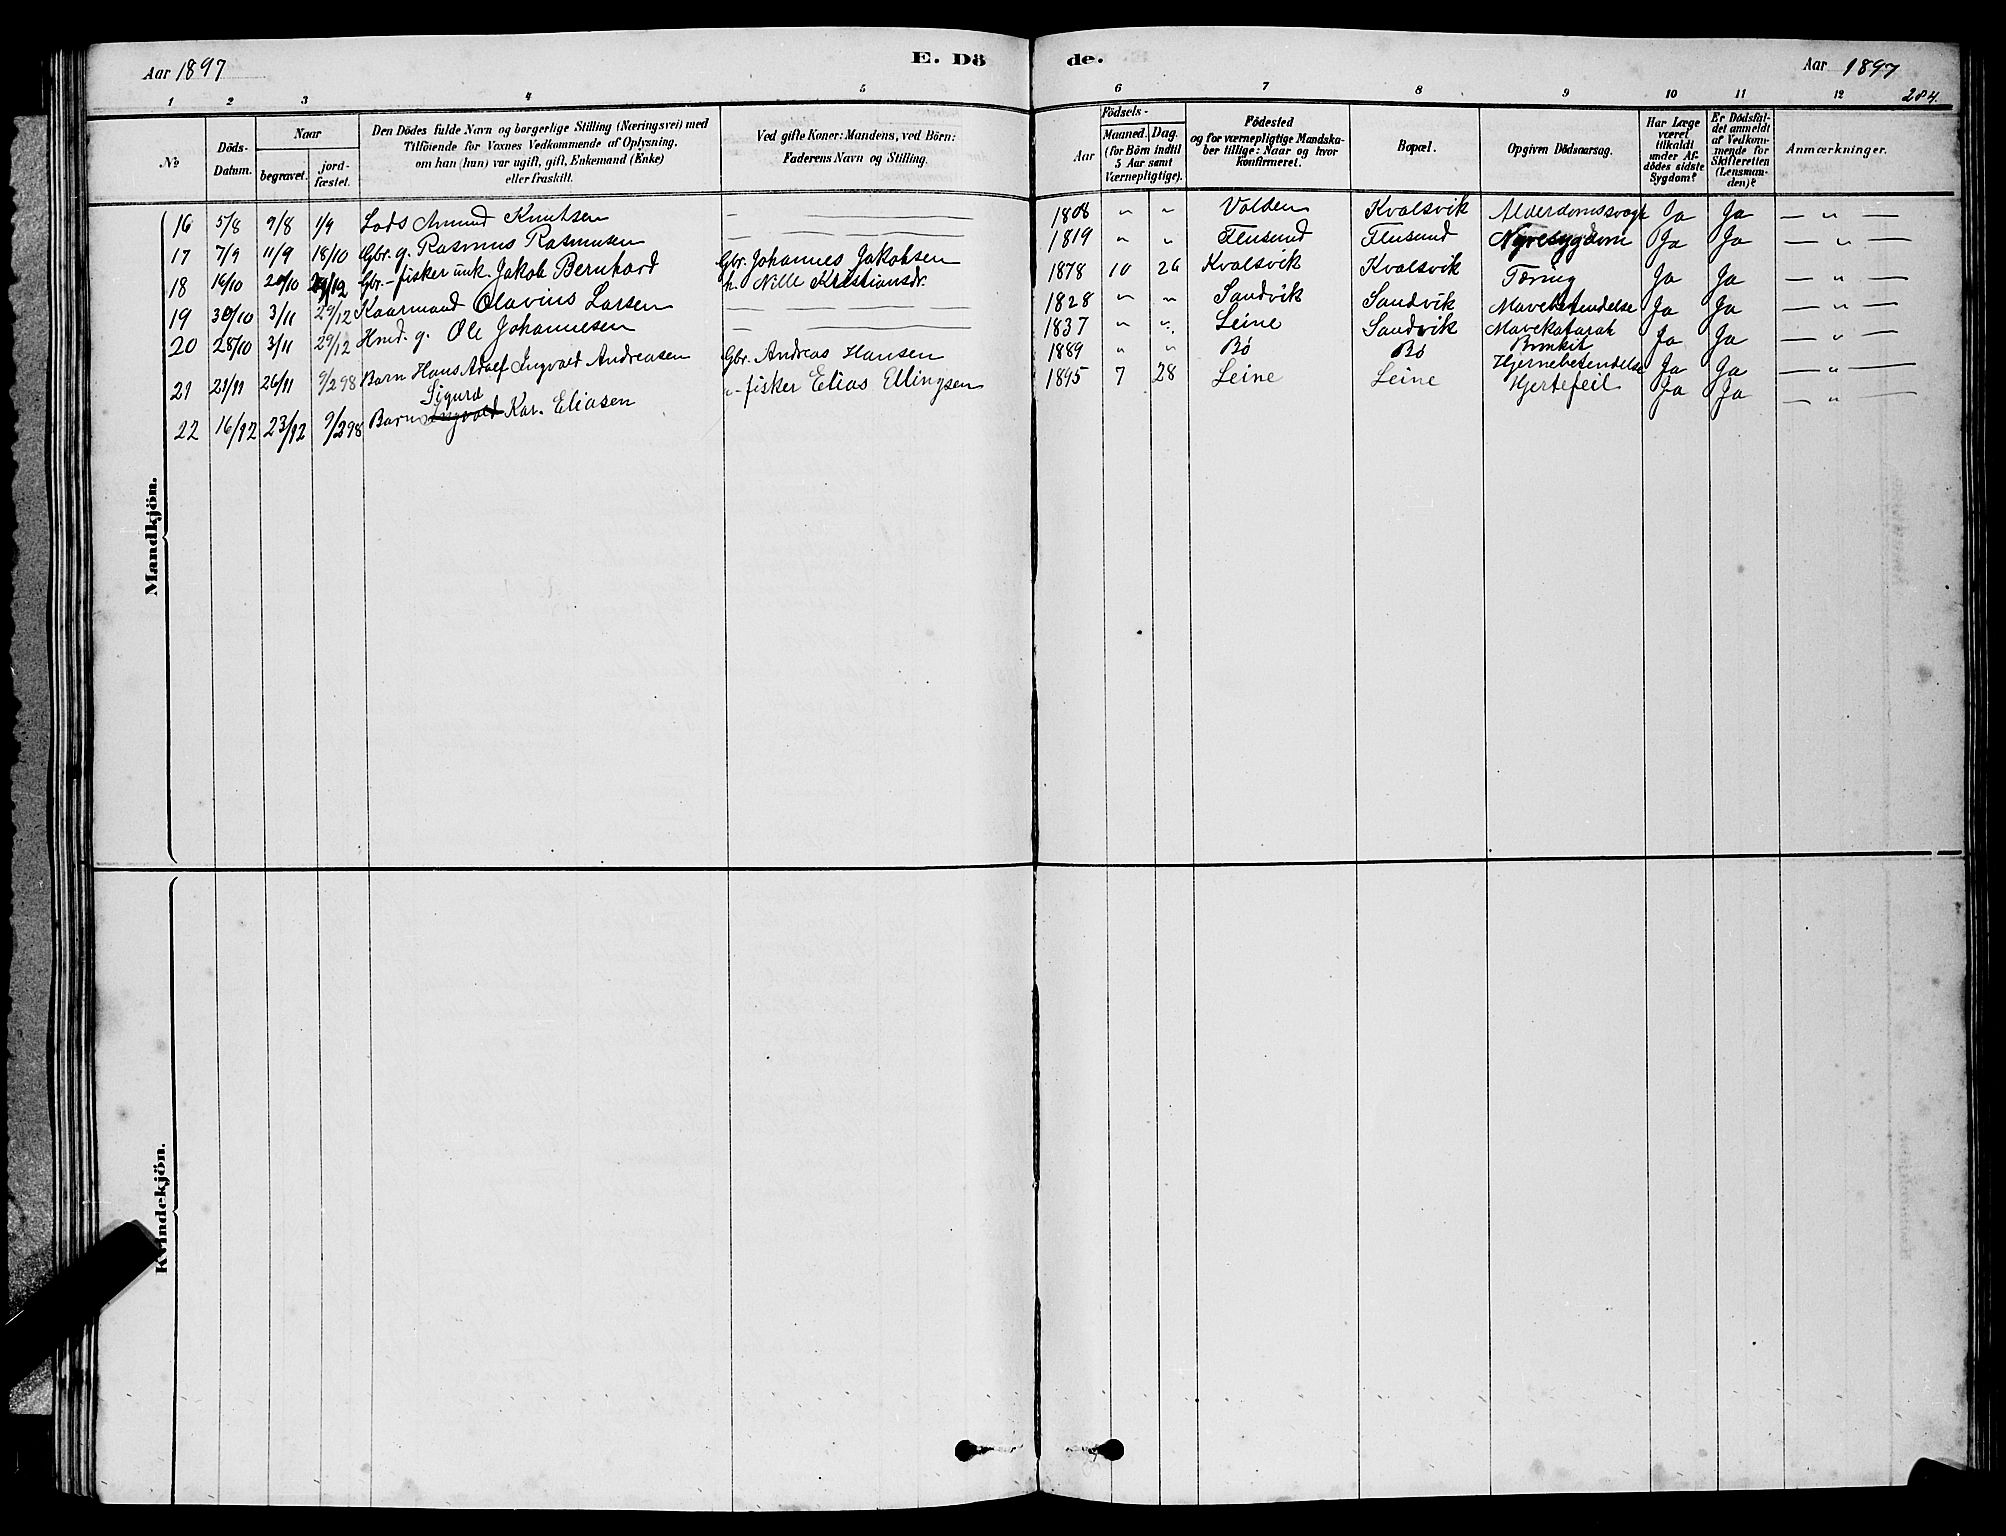 Aar 1897
E. Dö
de.
Aar 1897
1 2 3 4 5
6 7 8 9 10 11 12 284.
№
Döds-Datum.
Naar
begravet.
jord-fæstet.
Den Dödes fulde Navn og borgerlige Stilling (Næringsvei) med
Tilföiende for Voxnes Vedkommende af Oplysning,
om han (hun) var ugift, gift, Enkemand (Enke)
eller fraskilt.
Ved gifte Koner: Mandens, ved Börn:
Faderens Navn og Stilling.
Födsels-
Aar
Maaned. Dag.
(for Börn indtil
5 Aar samt
Værnepligtige).
Födested
og for værnepligtige Mandska-
ber tillige: Naar og hvor
konfirmeret.
Bopæl.
Opgiven Dödsaarsag.
Har Læge
været
tilkaldt
under Af-
dödes sidste
Sygdom?
Er Dödsfal-
det anmeldt
af Vedkom-
mende for
Skifteretten
(Lensman-
den)?
Anmærkninger.
Mandkjön.
16 5/8 9/8 1/9 Lods Amund Knutsen — 1808 " " Volden Kvalsvik Alderdomssvagh Ja Ja — " —
17 7/9 11/9 18/10 Gbr. g. Rasmus Rasmusen — 1819 " " Flusund Flusund Nyresygdom Ja Ja — " —
18 16/10 20/10 29/12 Gbr.-fisker unk. Jakob Bernhard Gbr. Johannes Jakobsen
h. Nille Kristiansdr. 1878 10 26 Kvalsvik Kvalsvik Tæring Ja Ja — " —
19 30/10 3/11 29/12 Kaarmand Olavius Larsen — 1828 " " Sandvik Sandvik Mavebetendelse Ja Ja — " —
20 28/10 3/11 29/12 Hmd. g. Ole Johannesen — 1837 " " Leine Sandvik Mavekatarah
Bronkit Ja Ja — " —
21 21/11 26/11 9/2 98 Barn Hans Adolf Ingvald Andreasen Gbr. Andreas Hansen 1889 " " Bø Bø Hjernebetendelse Ja Ja — " —
Sigurd
22 16/12 23/12 9/2 98 Barn Ingvald Kar. Eliasen "-fisker Elias Ellingsen 1895 7 28 Leine Leine Hjertefeil Ja Ja — " —
Kvindekjön.